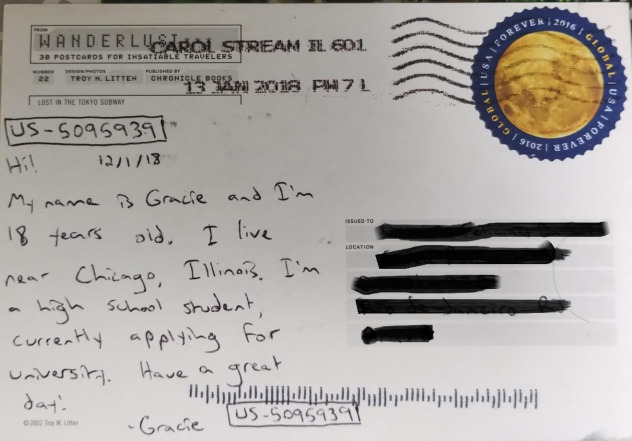 FROM
WANDERLUST
30 POSTCARDS FOR INSATIABLE TRAVELERS
NUMBER
22
DESIGN/PHOTOS
TROY M. LITTEN
PUBLISHED BY
CHRONICLE BOOKS
LOST IN THE TOKYO SUBWAY
CAROL STREAM IL 601
13 JAN 2018 PM 7 L
GLOBAL | USA | FOREVER | 2016 | GLOBAL | USA | FOREVER | 2016 |
US-5095939
Hi! 12/1/18
My name is Gracie and I'm
18 years old. I live
near Chicago, Illinois. I'm
a high school student,
currently applying for
university. Have a great
day!
-Gracie
US-5095939
ISSUED TO
LOCATION
©2002 Troy M. Litten